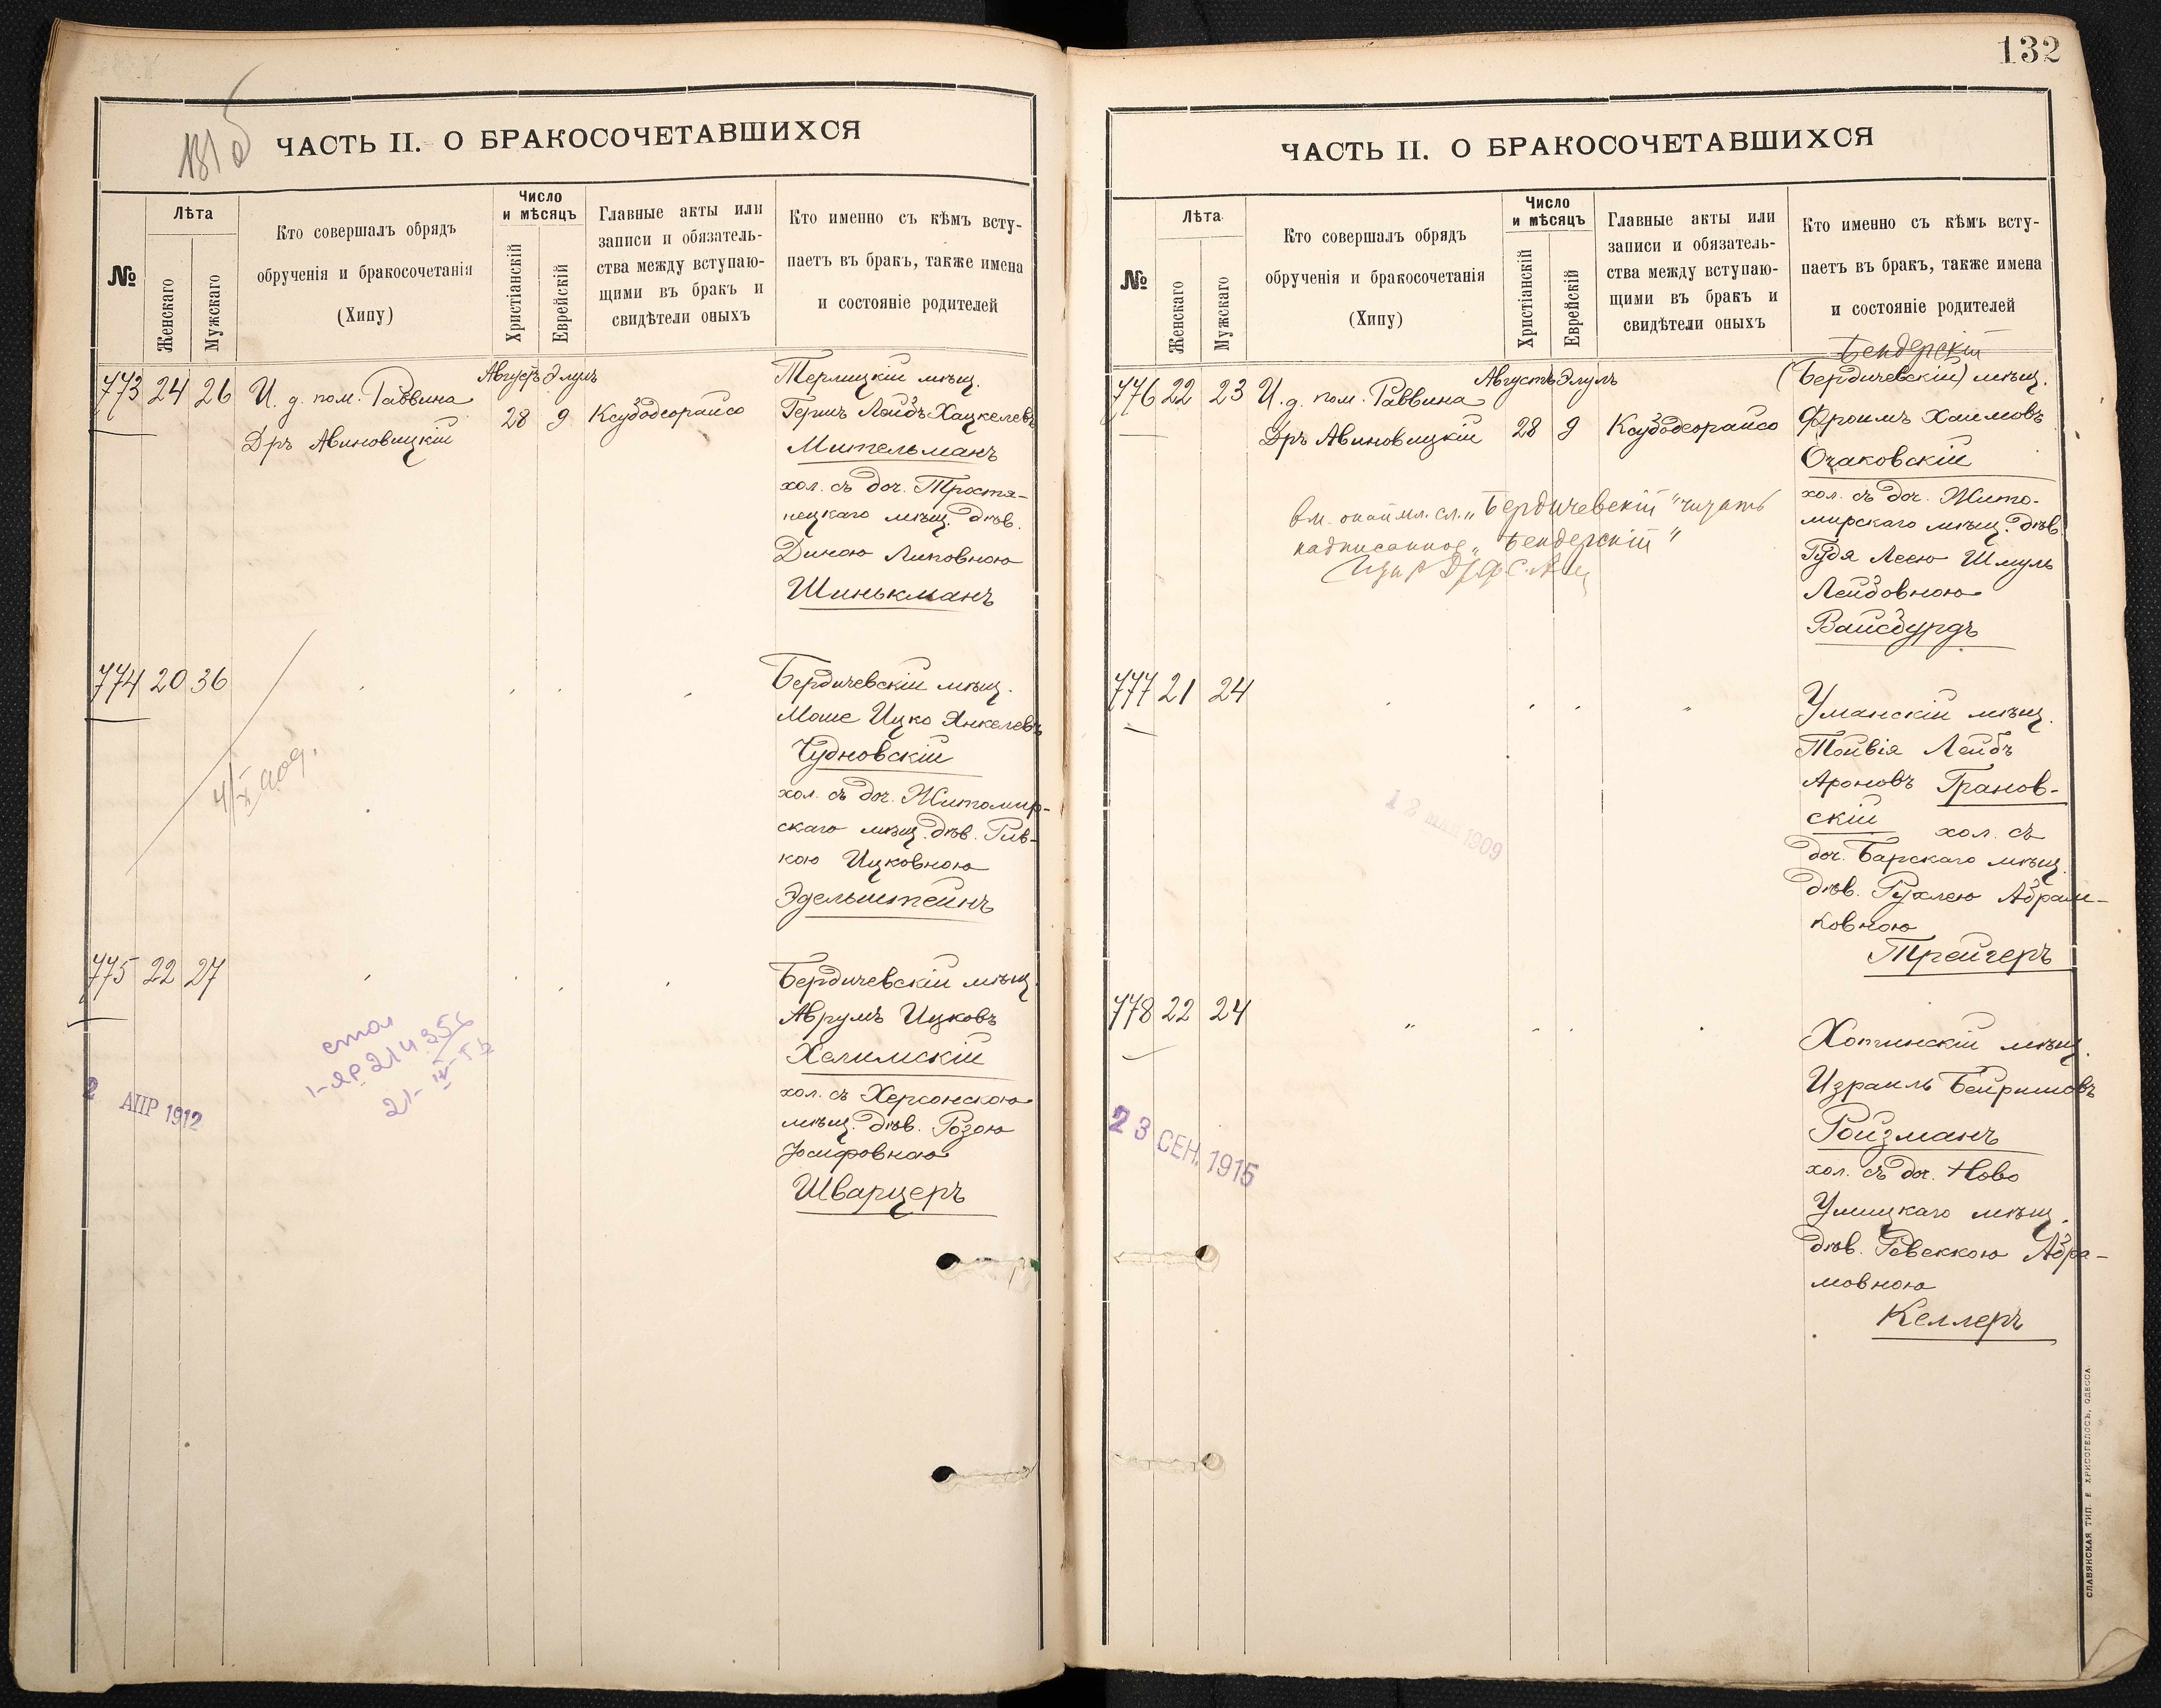 131 б
ЧАСТЬ II. О БРАКОСОЧЕТАВШИХСЯ
№
Лѣта
Женскаго
Мужскаго
Кто совершалъ обрядъ
обрученія и бракосочетанія
(Хипу)
Число
и мѣсяцъ
Христіанскій
Еврейскій
Главные акты или
записи и обязатель-
ства между вступаю-
щими въ бракъ и
свидѣтели оныхъ
Кто именно съ кѣмъ всту-
паетъ въ бракъ, также имена
и состояніе родителей
773 24 26
И. д. пом. Раввина
Дръ Авиновицкій
Августъ Элулъ
28 9
Ксубодеорайсо
Терлицкій мѣщ.
Гершъ Лейбъ Хацкелевъ
Мительманъ
хол. съ доч. Тростя-
нецкаго мѣщ. дѣв.
Диною Липовною
Шинькманъ
774 20 36
Бердичевскій мѣщ.
Моше Ицко Янкелевъ
Чудновскій
хол. съ доч. Житомир-
скаго мѣщ. дѣв. Рив-
кою Ицковною
Эдельштейнъ
775 22 27
2 АПР 1912
Бердичевскій мѣщ.
Аврумъ Ицковъ
Хелимскій
хол. съ Херсонскою
мѣщ. дѣв. Розою
Іосифовною
Шварцеръ
132
ЧАСТЬ II. О БРАКОСОЧЕТАВШИХСЯ
№
Лѣта
Женскаго
Мужскаго
Кто совершалъ обрядъ
обрученія и бракосочетанія
(Хипу)
Число
и мѣсяцъ
Христіанскій
Еврейскій
Главные акты или
записи и обязатель-
ства между вступаю-
щими въ бракъ и
свидѣтели оныхъ
Кто именно съ кѣмъ всту-
паетъ въ бракъ, также имена
и состояніе родителей
776 22 23
И. д. пом. Раввина
Дръ Авиновицкій
Августъ Элулъ
28 9
Ксубодеорайсо
Бендерскій
(Бердичевскій) мѣщ.
Фроимъ Хаимовъ
Очаковскій
хол. съ доч. Жито-
мирскаго мѣщ. дѣв.
Гудя Леею Шмуль
Лейбовною
Вайсбурдъ
вм. окаймл. сл. „Бердичевскій" читать
надписанное „Бендерскій"
777 21 24
1909
Уманскій мѣщ.
Тойвія Лейбъ
Ароновъ Гранов-
скій хол. съ
доч. Барскаго мѣщ.
дѣв. Рухлею Абрам-
ковною
Трейгеръ
778 22 24
23 СЕН. 1915
Хотинскій мѣщ.
Израиль Бейришовъ
Ройзманъ
хол. съ доч. Ново
Ушицкаго мѣщ.
дѣв. Ревеккою Абра-
мовною
Келлеръ
СЛАВЯНСКАЯ ТИП. Е ХРИСОГЕЛОСЪ, ОДЕССА